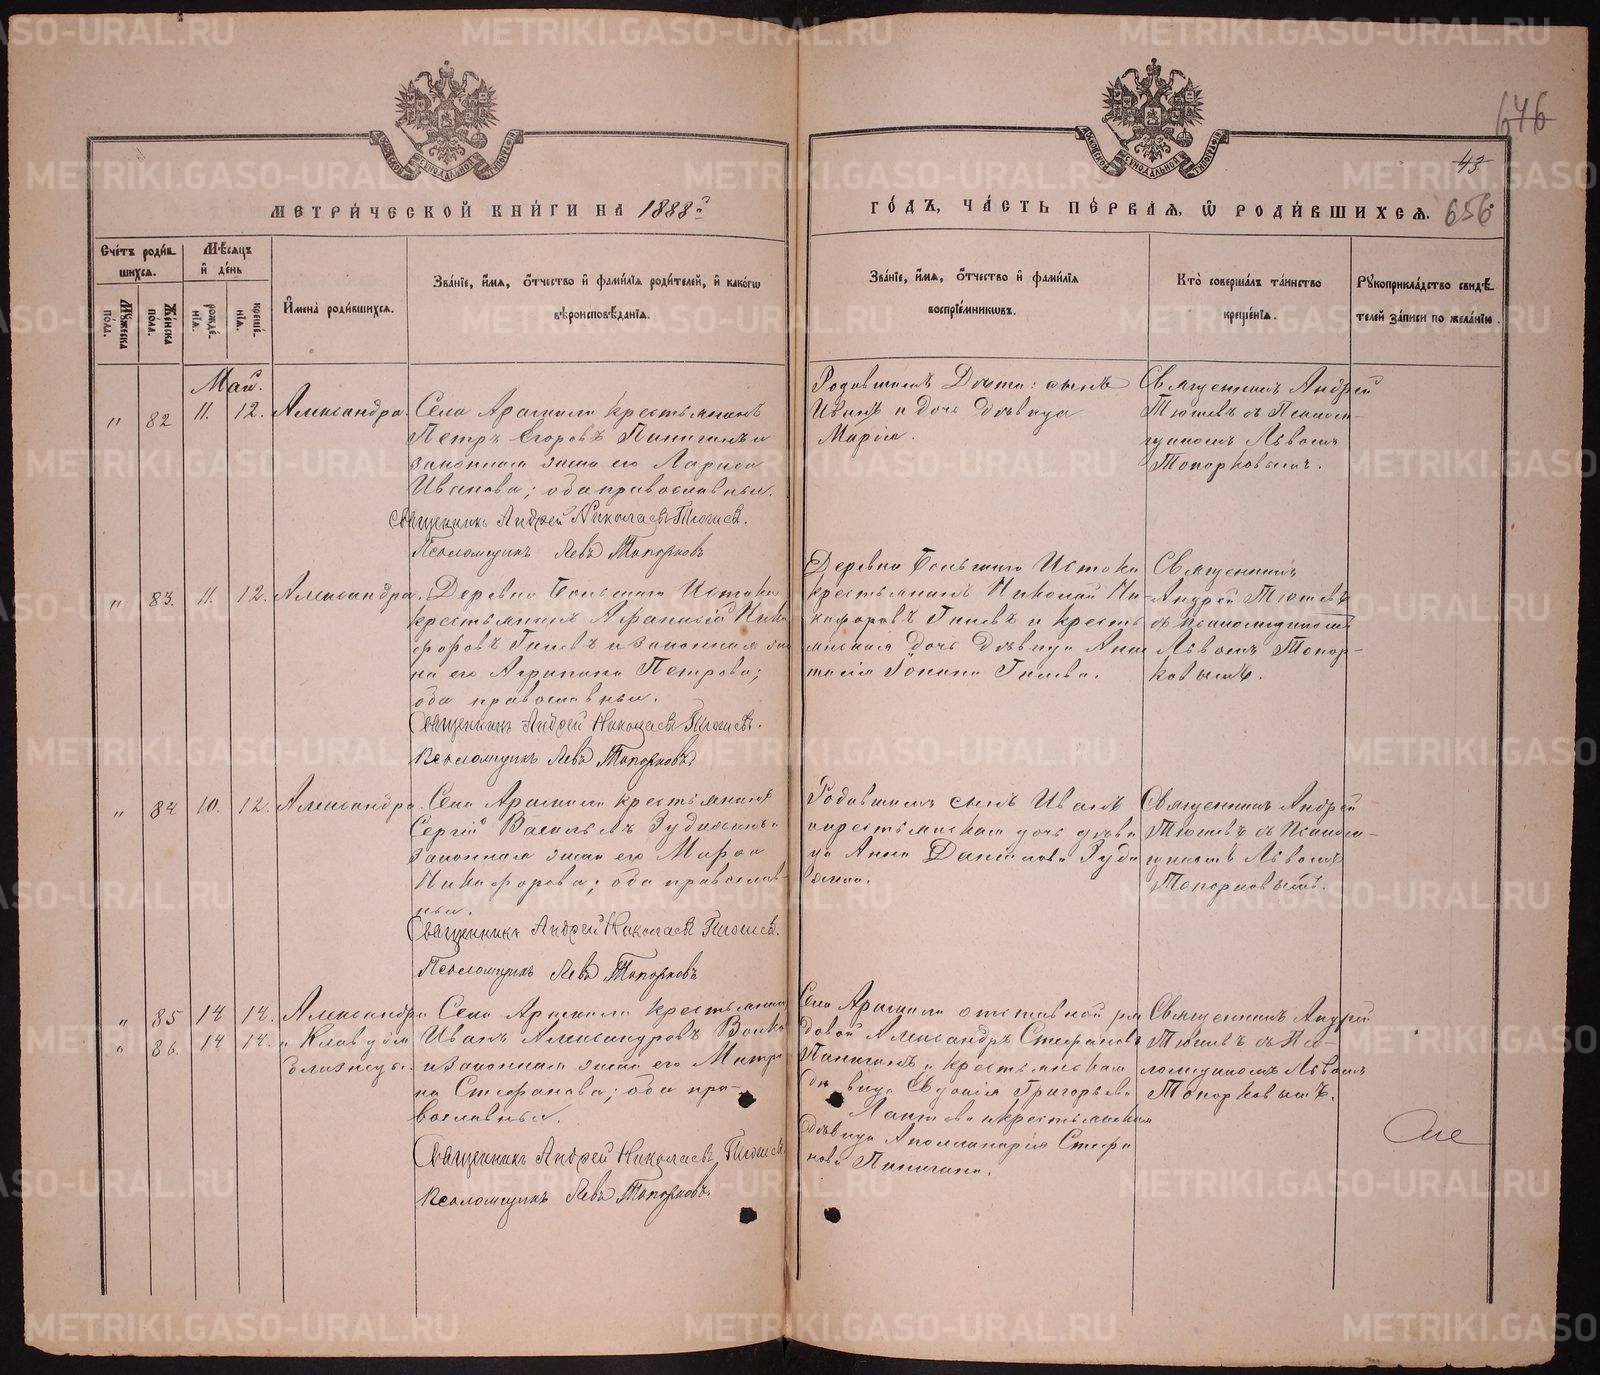 646
43
МЕТРИ́ЧЕСКОЙ КНИ́ГИ НА 1888й
ГО́ДЪ, ЧА́СТЬ ПЕ́РВАЯ, Ѡ РОДИ́ВШИХСЯ. 656
Сче́тъ роди́в-
шихся.
Мꙋжеска по́ла.
Же́нска по́ла.
Мѣ́сяцъ
и҆ де́нь
рожде́нїя.
креще́нїя.
И҆мена̀ роди́вшихся.
Зва́нїе, и҆́мя, ѻ҆́тчество и҆ фами́лїя роди́телей, и҆ како́гѡ
вѣроисповѣ́данїя.
Зва́нїе, и҆́мя, ѻ҆́тчество и҆ фами́лїя
воспрїе́мникѡвъ.
Кто̀ соверша́лъ та́инство
креще́нїя.
Рꙋкоприкла́дство свидѣ́-
телей за́писи по жела́нїю.
Май.
" 82 11. 12. Александра.
Села Арамили крестьянинъ
Петръ Егоровъ и
законная жена его Лариса
Иванова; оба православные.
Священникъ Андрей Николаевъ Тюшевъ.
Псаломщикъ Левъ Топорковъ
Родившагося сынъ
Иванъ и дочь дѣвица
Марія.
Священникъ Андрей
Тюшевъ съ Псалом-
щикомъ Львомъ
Топорковымъ.
" 83. 11. 12. Александра.
Деревни Большаго Истока
крестьянинъ Афанасій Ники
форовъ Гилевъ и законная же
на его Агрипина Петрова;
оба православные.
Священникъ Андрей Николаевъ Тюшевъ.
Псаломщикъ Левъ Топорковъ
Деревни Большаго Истока
крестьянинъ Николай Ни-
кифоровъ Гилевъ и кресть
янская дочь дѣвица Анас
тасія Гилева.
Священникъ
Андрей Тюшевъ
съ псаломщикомъ
Львомъ Топор-
ковымъ.
" 84 10. 12. Александра.
Села Арамили крестьянинъ
Сергій Васильевъ и
законная жена его Марфа
Никифорова; оба православ-
ные.
Священникъ Андрей Николаевъ Тюшевъ.
Псаломщикъ Левъ Топорковъ
Родившагося сынъ Иванъ
и крестьянская дочь дѣви
ца Анна Даніилова
Священникъ Андрей
Тюшевъ съ Псалом-
щикомъ Львомъ
Топорковымъ.
" 85 14 14. Александра
" 86. 14 14. и Клавдія
близнецы.
Села Арамили крестьянинъ
Иванъ Александровъ
и законная жена его Матро
на Стефанова; оба пра-
вославные.
Священникъ Андрей Николаевъ Тюшевъ
Псаломщикъ Левъ Топорковъ.
Села Арамили отставной ря
довой Александръ Стефановъ
и крестьянская
дѣвица Евдокія Григорьева
и крестьянская
дѣвица Аполлинарія Стефа
нова
Священникъ Андрей
Тюшевъ съ Пса-
ломщикомъ Львомъ
Топорковымъ.
METRIKI.GASO-URAL.RU